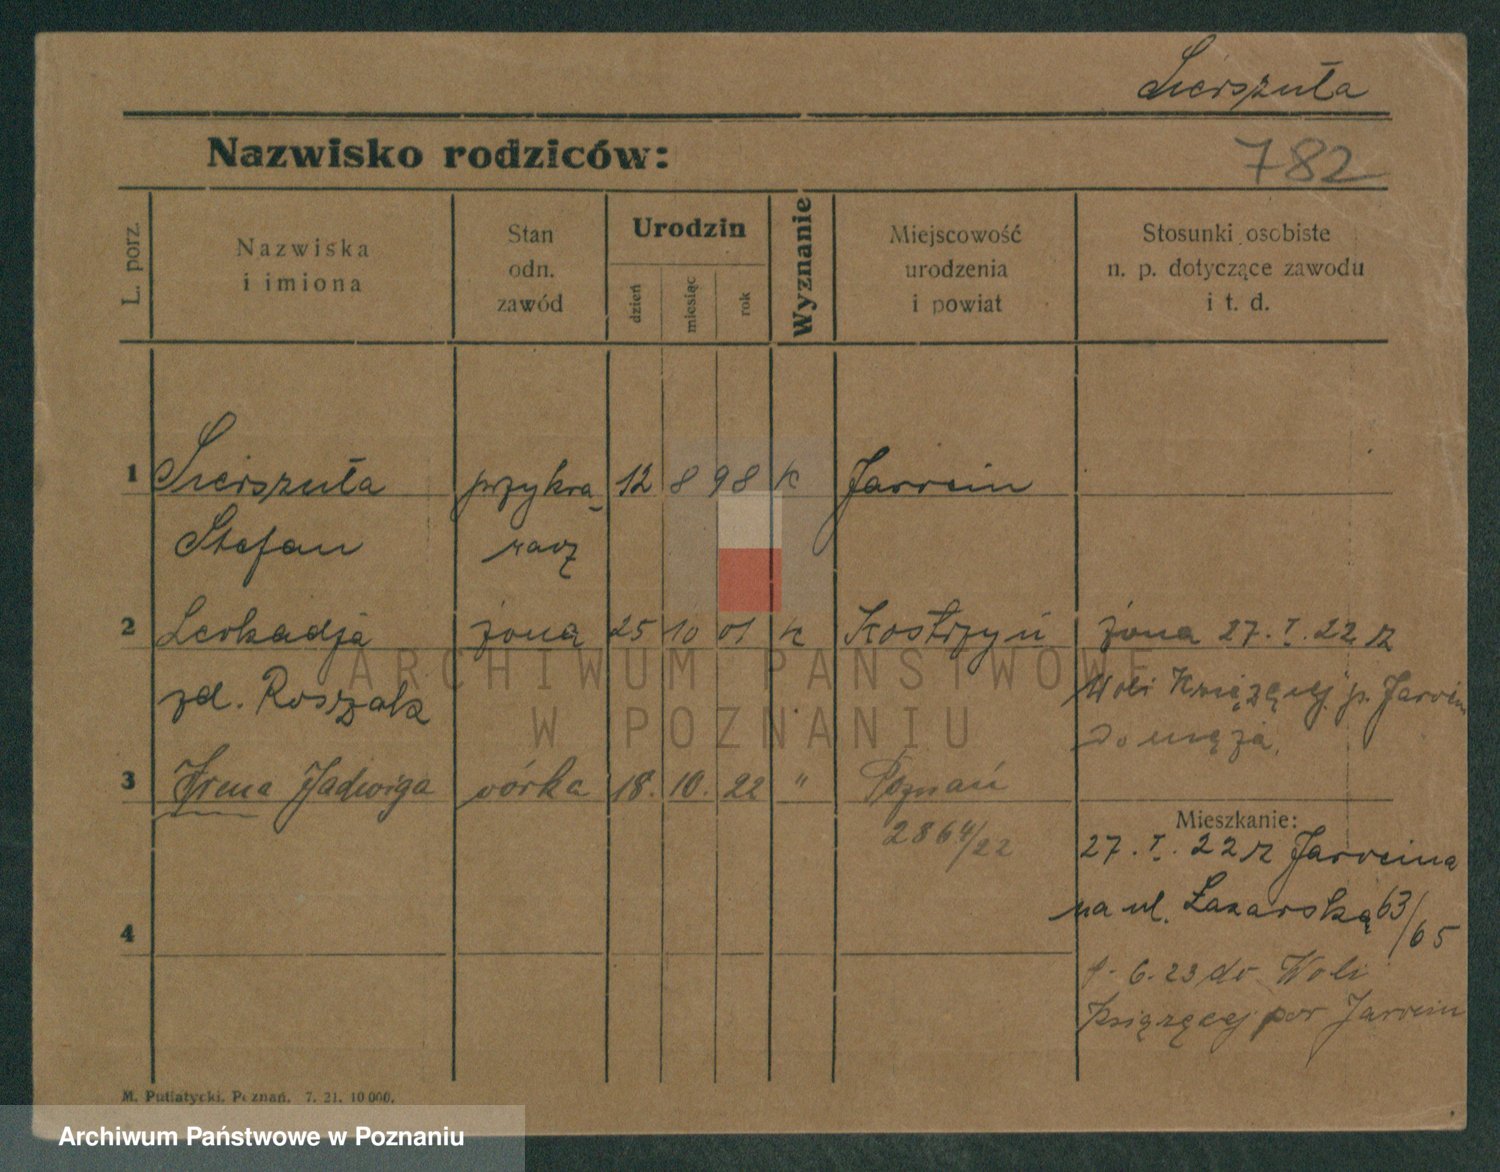 Sierszuła
Nazwisko rodziców:
782
L. porz.
Nazwiska
i imiona
Stan
odn.
zawód
Urodzin
dzień
miesiąc
rok
Wyznanie
Miejscowość
urodzenia
i powiat
Stosunki osobiste
n. p. dotyczące zawodu
i t. d.
1 Sierszuła przykra- 12 8 98 k Jarocin
Stefan wacz
2 Leokadja żona 25 10 01 k Kostrzyń żona 27. I. 22 z
zd. Roszak Woli Książęcej p. Jarocin
do męża
3 Irena Jadwiga córka 18. 10. 22 " Poznań
2864/22
Mieszkanie:
27. I. 22 z Jarocina
na ul. Łazarską 63/65
4
1. 6. 23 do Woli
Książęcej pow Jarocin
M. Putiatycki, Poznań. 7. 21. 10 000.
ARCHIWUM PAŃSTWOWE
W POZNANIU
Archiwum Państwowe w Poznaniu